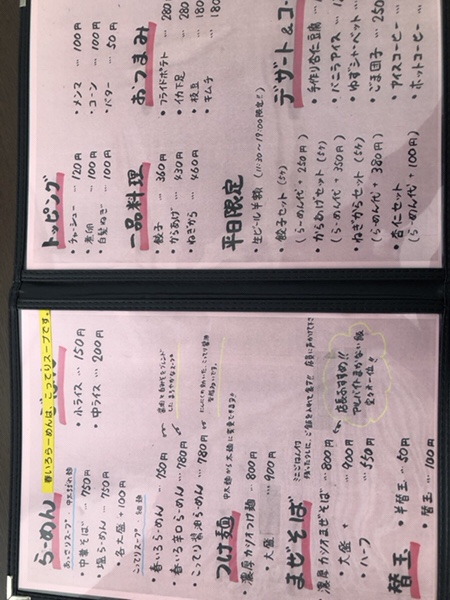 らーめん
あっさりスープ 中太ちぢれ麺
・中華そば … 750円
・塩らーめん … 750円
・各大盛 … 100円
こってりスープ 細麺
・春いろらーめん … 750円
・春いろ辛口らーめん … 780円
・こってり醤油らーめん … 780円
つけ麺
中太麺から太麺に変更できます♪
・濃厚カツオつけ麺 … 800円
・大盛 … 900円
まぜそば
ミニごはん付
・濃厚カツオまぜそば … 800円
・大盛 〃 … 900円
・ハーフ … 550円
替玉
・半替玉 … 50円
・替玉 … 100円
春いろらーめんは、こってりスープです。
・小ライス … 150円
・中ライス … 200円
店長おすすめ!!
アルバイトまかない飯
堂々オー位☆
トッピング
・チャーシュー … 120円
・煮卵 … 100円
・白髪ねぎ … 100円
・メンマ … 100円
・コーン … 100円
・バター … 50円
一品料理
・餃子 … 360円
・からあげ … 430円
・ねぎから … 460円
おつまみ
・フライドポテト … 280
・イカ下足 … 280
・枝豆 … 180
・キムチ … 180
平日限定
・生ビール半額 (11:30~19:00限定!!)
・餃子セット (5ヶ)
(らーめん代+250円)
・からあげセット (3ヶ)
(らーめん代+350円)
・ねぎからセット (3ヶ)
(らーめん代+380円)
・杏仁セット
(らーめん代+100円)
デザート&コー
・手作り杏仁豆腐 …
・バニラアイス …
・ゆずシャーベット …
・ごま団子 … 250
・アイスコーヒー …
・ホットコーヒー …